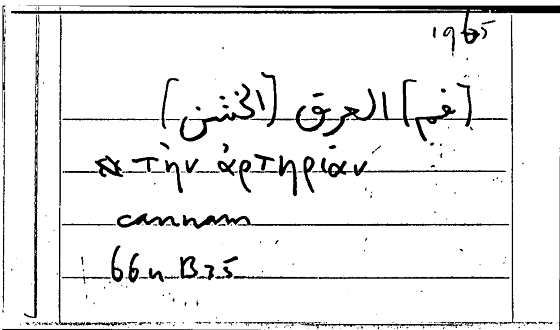 1965
[فم] العرق [الخشن]
τὴν ἀρτηρίαν
cannam
664 B35